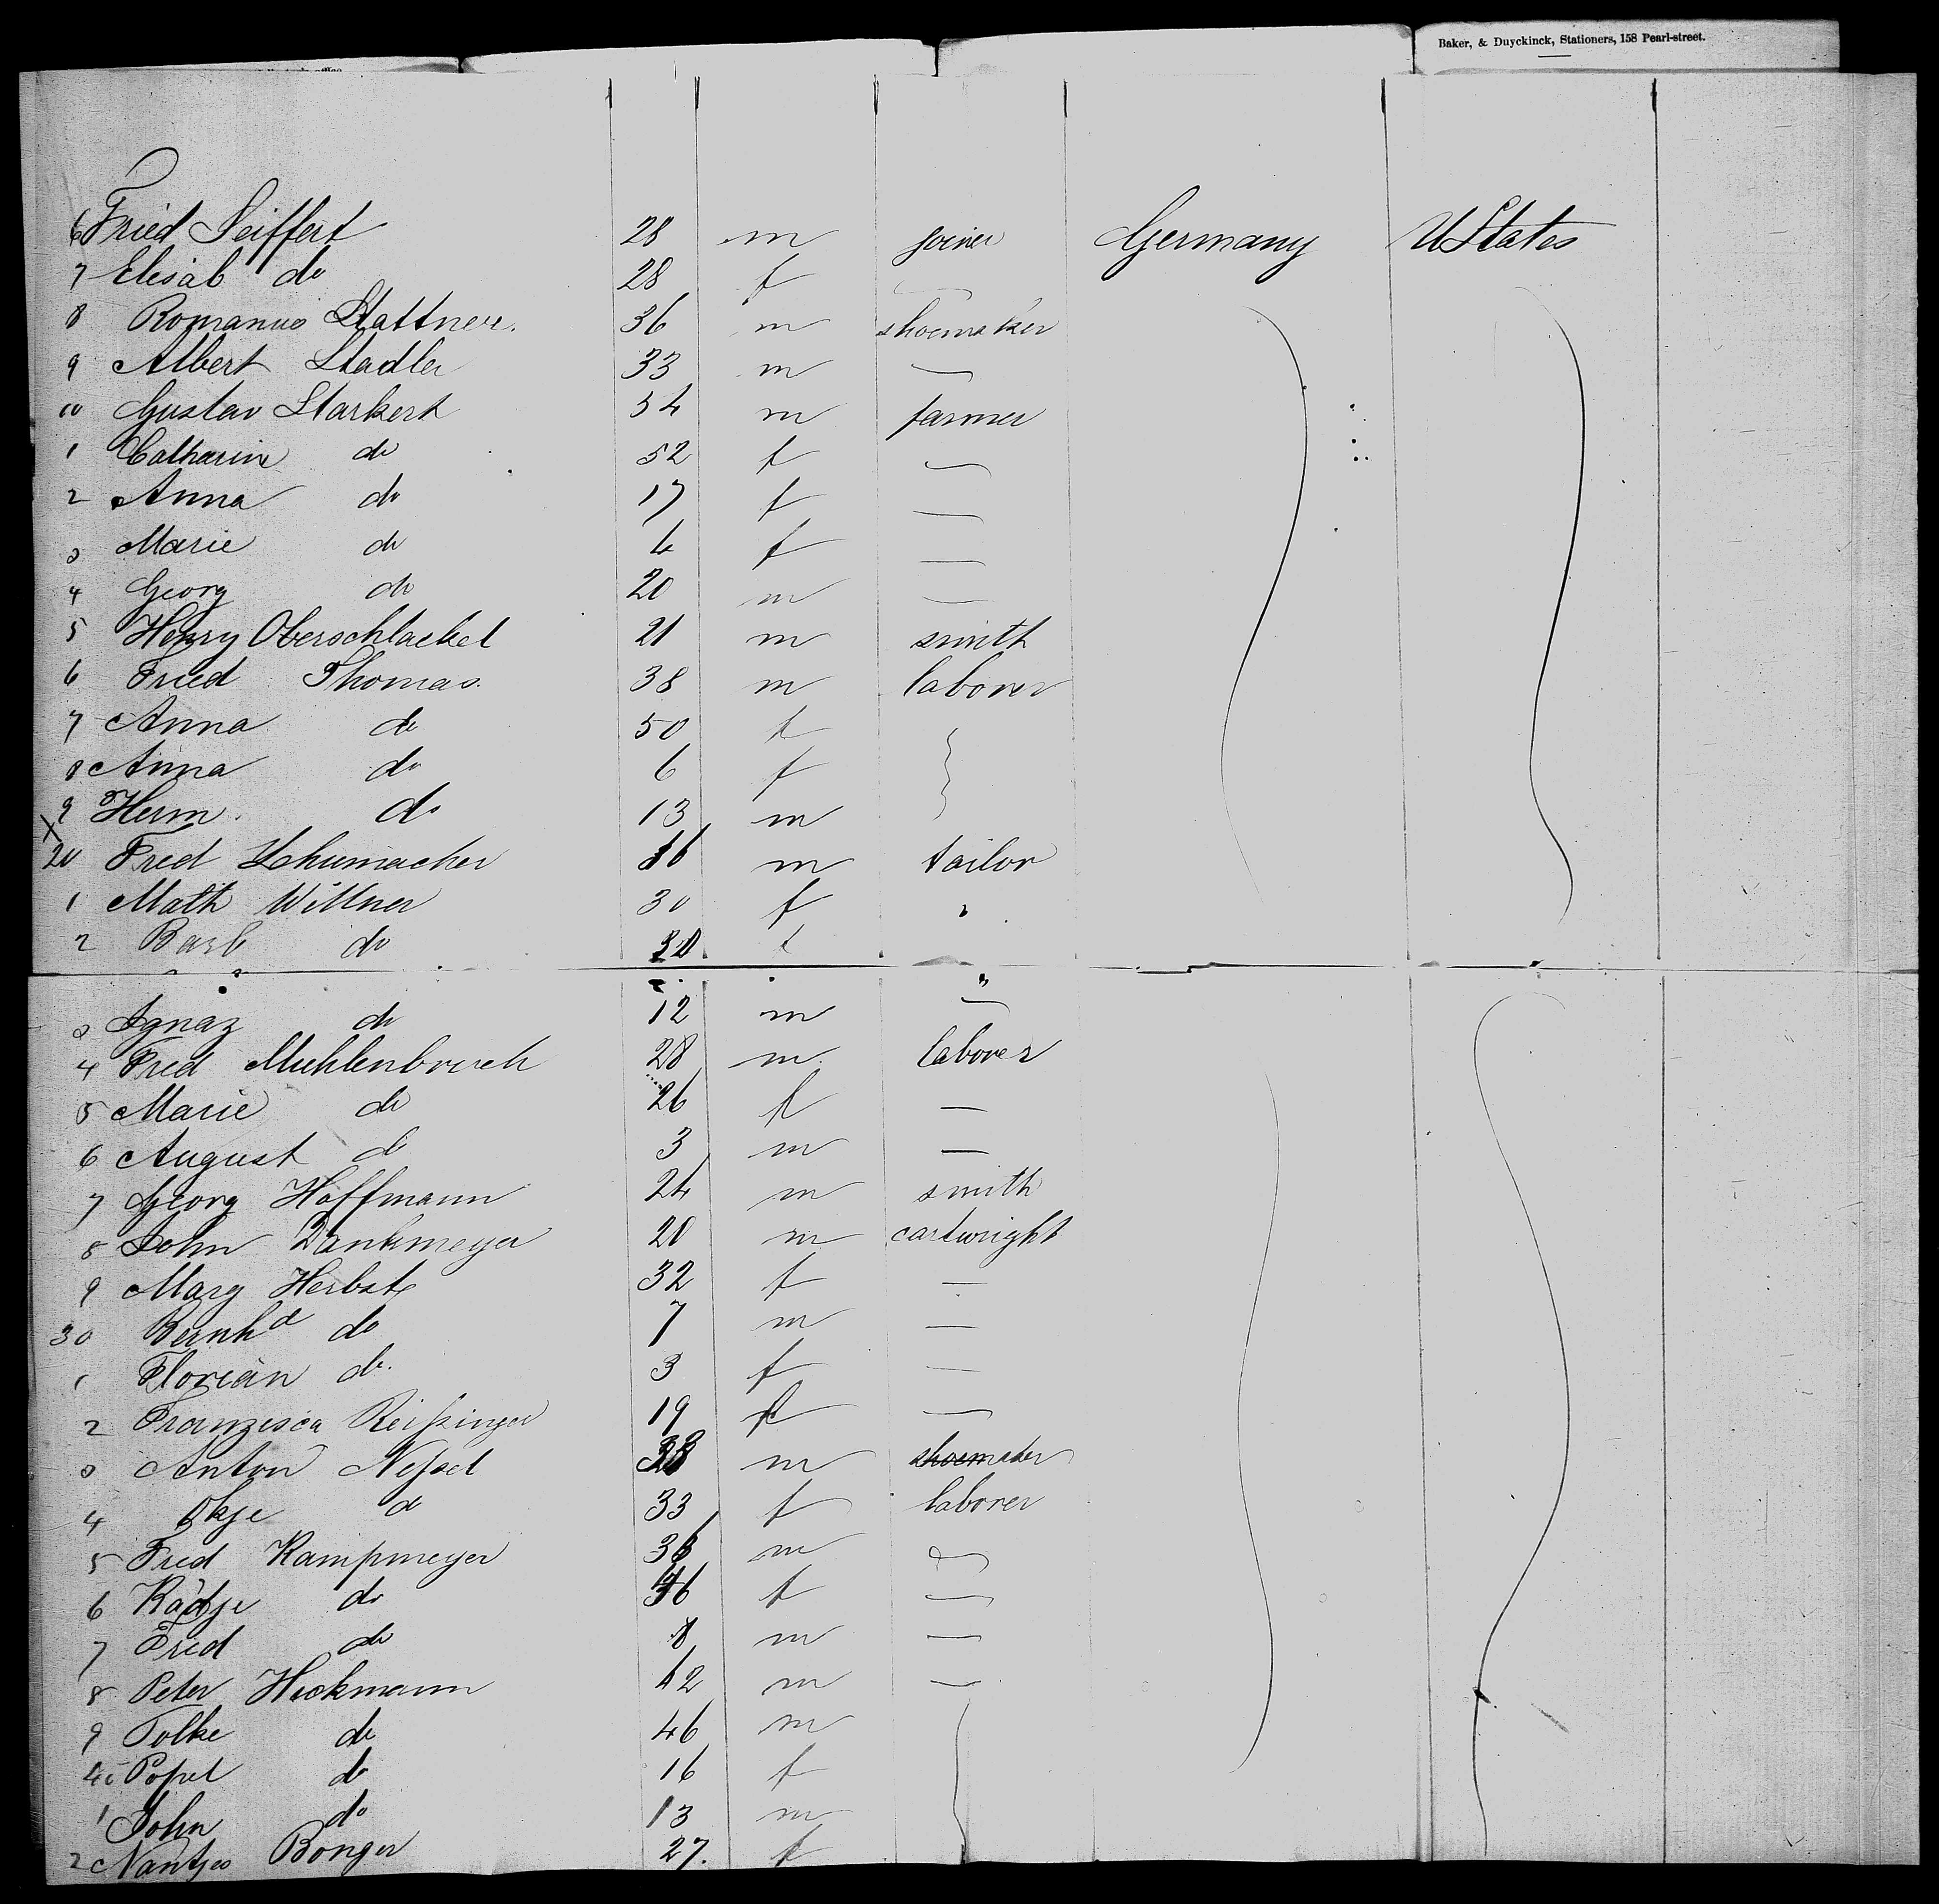 Baker, & Duyckinck, Stationers, 158 Pearl-street.
6 Fried Seiffert 28 m joiner Germany UStates
7 Elisab do 28 f
8 Romanus Stattner. 36 m shoemaker
9 Albert Stadler 33 m —
10 Gustav Starkert 54 m farmer
1 Catharine do 52 f —
2 Anna do 17 f —
3 Marie do 4 f —
4 Georg do 20 m —
5 Henry Oberschlackel 21 m smith
6 Fried Thomas. 38 m laborer
7 Anna do 50 f
8 Anna do 6 f
9 Herm. do 13 m
X
20 Fred Schumacher 16 m tailor
1 Math Willner 30 f "
2 Barb do f
"
3 Ignaz do 12 m —
4 Fred Muhlenbruch 28 m laborer
5 Marie do 26 f —
6 August do 3 m —
7 Georg Hoffmann 24 m smith
8 John Dankmeyer 20 m cartwright
9 Marg Herbst 32 f —
30 Bernhd do 7 m —
1 Florian do. 3 f —
2 Franzisca Reißinger 19 f —
3 Anton Neßel 38 m shoemaker
4 Okje do 33 f laborer
5 Fred Kampmeyer 36 m
6 Kadje do 46 f —
7 Fred do 8 m —
8 Peter Hickmann 42 m —
9 Tolke do 46 m
40 Popel do 16 f
1 John do 13 m
2 Nantjes Bonger 27. f